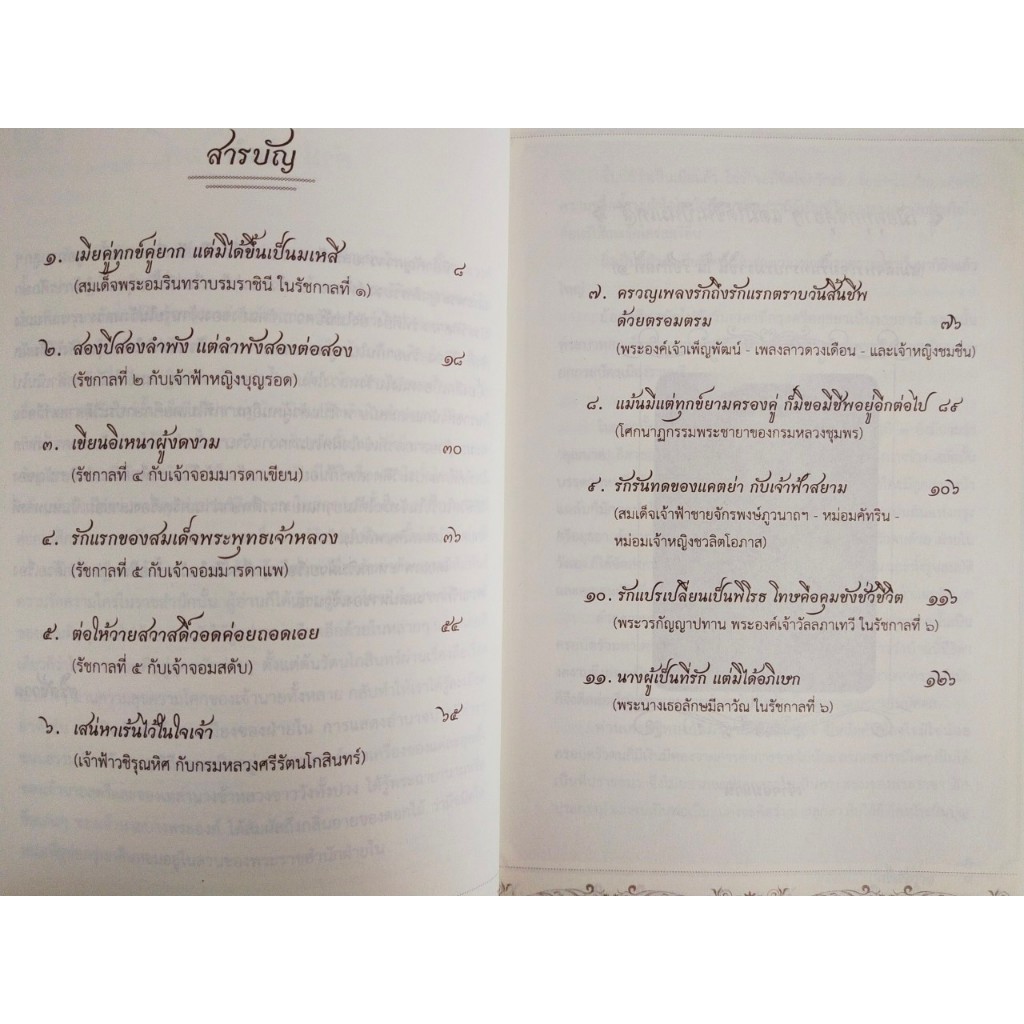 สารบัญ
๑. เมียคู่ทุกข์คู่ยาก แต่มิได้ขึ้นเป็นมเหสี ๘
(สมเด็จพระอมรินทราบรมราชินี ในรัชกาลที่ ๑)
๒. สองปีสองลำพัง แต่ลำพังสองต่อสอง ๑๘
(รัชกาลที่ ๒ กับเจ้าฟ้าหญิงบุญรอด)
๓. เขียนอิเหนาผู้งดงาม ๓๐
(รัชกาลที่ ๔ กับเจ้าจอมมารดาเขียน)
๔. รักแรกของสมเด็จพระพุทธเจ้าหลวง ๓๖
(รัชกาลที่ ๕ กับเจ้าจอมมารดาแพ)
๕. ต่อให้วายสวาสดิ์วอดค่อยถอดเอย ๕๔
(รัชกาลที่ ๕ กับเจ้าจอมสดับ)
๖. เสน่หาเร้นไว้ในใจเจ้า ๖๕
(เจ้าฟ้าวชิรุณหิศ กับกรมหลวงศรีรัตนโกสินทร์)
๗. ครวญเพลงรักถึงรักแรกตราบวันสิ้นชีพ
ด้วยตรอมตรม ๗๖
(พระองค์เจ้าเพ็ญพัฒน์ - เพลงลาวดวงเดือน - และเจ้าหญิงชมชื่น)
๘. แม้นมีแต่ทุกข์ยามครองคู่ ก็มิขอมีชีพอยู่อีกต่อไป ๘๙
(โศกนาฏกรรมพระชายาของกรมหลวงชุมพร)
๙. รักรันทดของแคตย่า กับเจ้าฟ้าสยาม ๑๐๖
(สมเด็จเจ้าฟ้าชายจักรพงษ์ภูวนาถฯ - หม่อมคัทริน -
หม่อมเจ้าหญิงชวลิตโอภาส)
๑๐. รักแปรเปลี่ยนเป็นพิโรธ โทษคือคุมขังชั่วชีวิต ๑๑๖
(พระวรกัญญาปทาน พระองค์เจ้าวัลลภาเทวี ในรัชกาลที่ ๖)
๑๑. นางผู้เป็นที่รัก แต่มิได้อภิเษก ๑๒๖
(พระนางเธอลักษมีลาวัณ ในรัชกาลที่ ๖)